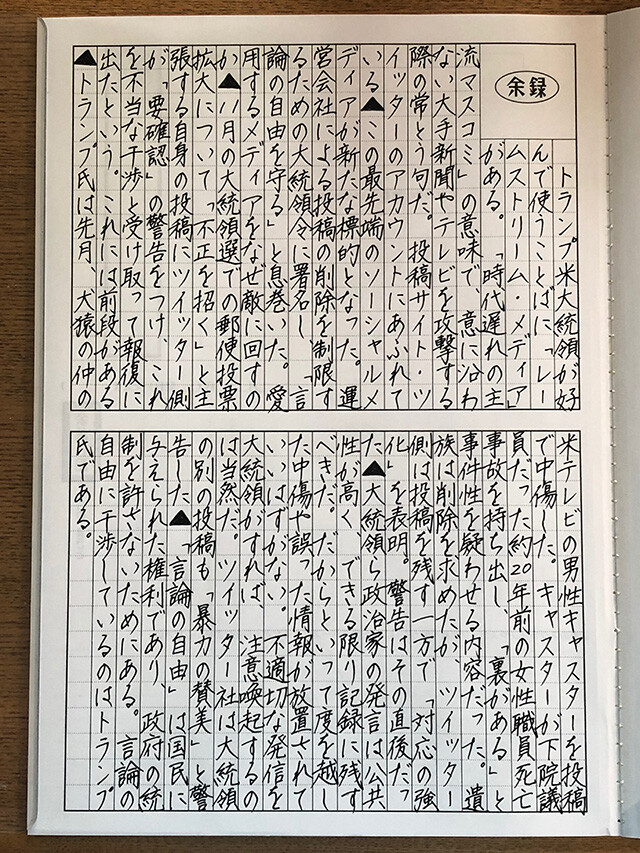 余録
トランプ米大統領が好
んで使うことばに「レー
ムストリーム・メディア」
がある。「時代遅れの主
流マスコミ」の意味で、意に沿わ
ない大手新聞やテレビを攻撃する
際の常とう句だ。投稿サイト・ツ
イッターのアカウントにあふれて
いる▲この最先端のソーシャルメ
ディアが新たな標的となった。運
営会社による投稿の削除を制限す
るための大統領令に署名し、「言
論の自由を守る」と息巻いた。愛
用するメディアをなぜ敵に回すの
か▲11月の大統領選での郵便投票
拡大について「不正を招く」と主
張する自身の投稿にツイッター側
が「要確認」の警告をつけ、これ
を不当な干渉と受け取って報復に
出たという。これには前段がある
▲トランプ氏は先月、犬猿の仲の
米テレビの男性キャスターを投稿
で中傷した。キャスターが下院議
員だった約20年前の女性職員死亡
事故を持ち出し、「裏がある」と
事件性を疑わせる内容だった。遺
族は削除を求めたが、ツイッター
側は投稿を残す一方で「対応の強
化」を表明。警告はその直後だっ
た▲大統領ら政治家の発言は公共
性が高く、できる限り記録に残す
べきだ。だからといって度を越し
た中傷や誤った情報が放置されて
いいはずがない。不適切な発信を
大統領がすれば、注意喚起するの
は当然だ。ツイッター社は大統領
の別の投稿も「暴力の賛美」と警
告した▲「言論の自由」は国民に
与えられた権利であり、政府の統
制を許さないためにある。言論の
自由に干渉しているのはトランプ
氏である。